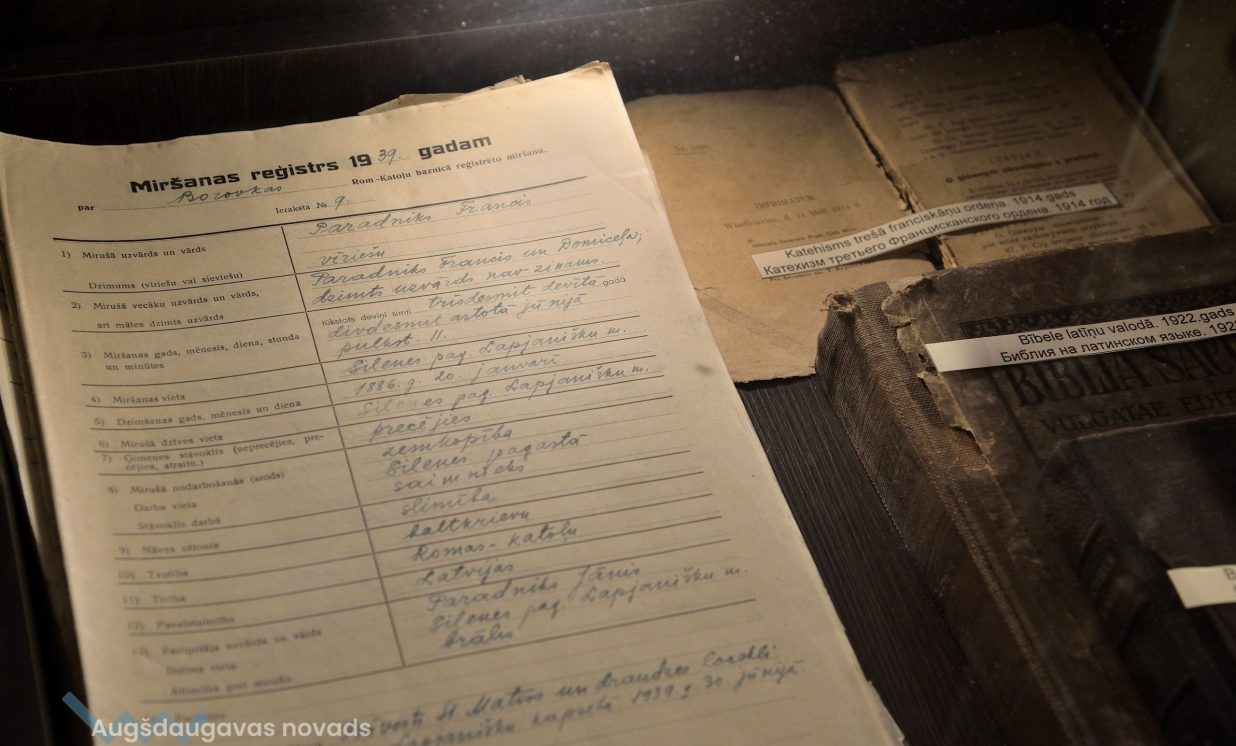 Miršanas reģistrs 1939. gadam
par Borovkas Rom.-Katoļu baznīcā reģistrēto miršanu.
Ieraksta № 9.
1) Mirušā uzvārds un vārds
Paradniks Francis
Dzimums (vīriešu vai sieviešu)
vīriešu
2) Mirušā vecāku uzvārds un vārds,
arī mātes dzimts uzvārds
Paradniks Francis un Domicela;
dzimts uzvārds nav zināms.
3) Miršanas gads, mēnesis, diena, stunda
un minūtes
tūkstots deviņi simti trīsdesmit devītā gadā
divdesmit astotā jūnijā
pulkst. 11.
4) Miršanas vieta
Silenes pag. Lapjanišku m.
5) Dzimšanas gads, mēnesis un diena
1886. g. 20. janvarī.
6) Mirušā dzīves vieta
Silenes pag. Lapjanišku m.
7) Ģimenes stāvoklis (neprecējies, pre-
cējies, atraitn.)
precējies
8) Mirušā nodarbošanās (arods)
zemkopība
Darba vieta
Silenes pagastā
Stāvoklis darbā
saimnieks
9) Nāves cēlonis
slimība
10) Tautība
baltkrievu
11) Ticība
Romas-katoļu
12) Pavalstniecība
Latvijas
13) Paziņotāja uzvārds un vārds
Paradniks Jānis
Dzīves vieta
Silenes pag. Lapjanišku m.
Attiecība pret mirušo
brālis
St. Matiss un draudzes
kapsētā 1939. g. 30. jūnijā
IMPRIMATUR.
Katehisms trešā franciskāņu ordeņa. 1914.gads
Катехизм третьего Францисканского ордена. 1914 год
Bībele latīņu valodā. 1922.gads
Библия на латинском языке. 192
BIBLIA SAC
VULGATAE EDIT
Augšdaugavas novads